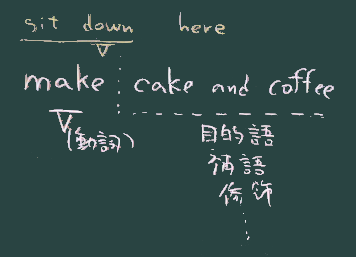 sit down here
V
make cake and coffee
V
(動詞)
目的語
補語
修飾